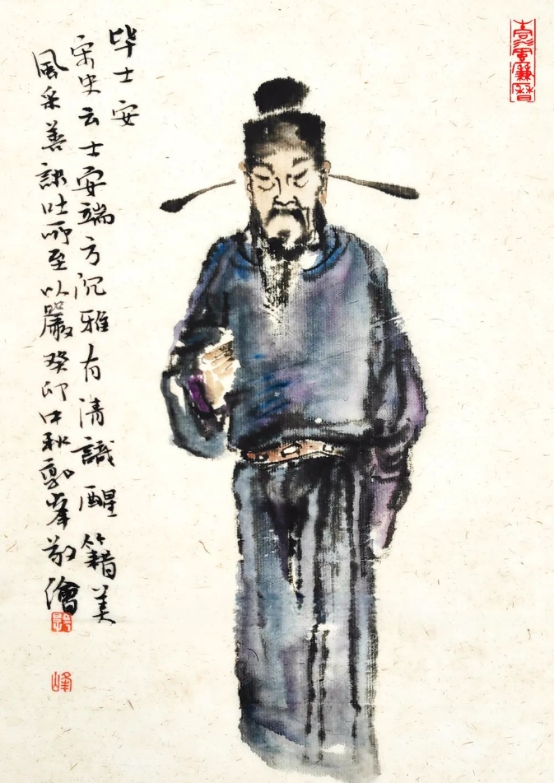 毕士安
宋史云士安端方沉雅有清識醒籍美
風采善談吐所至以嚴癸卯中秋郭峯敬繪
郭
峰